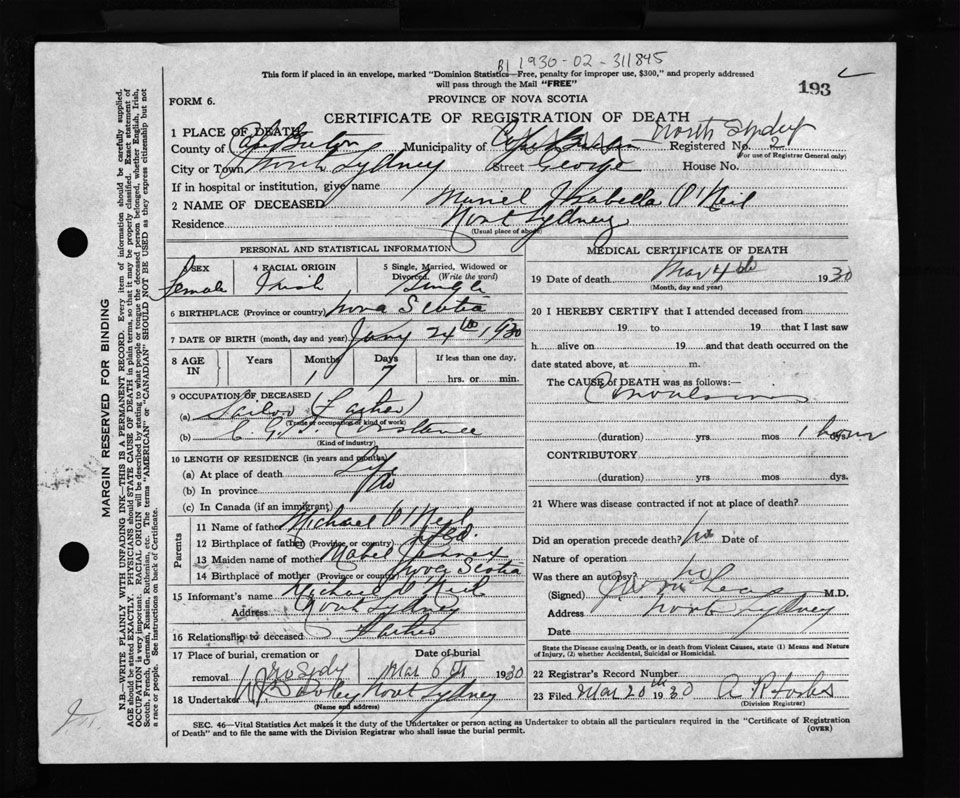 B1 1930-02-311845
This form if placed in an envelope, marked "Dominion Statistics—Free, penalty for improper use, $300," and properly addressed
will pass through the Mail "FREE"
193
FORM 6.
PROVINCE OF NOVA SCOTIA
CERTIFICATE OF REGISTRATION OF DEATH
1 PLACE OF DEATH
North Sydney
County of Cape Breton Municipality of Cape Breton Registered No. 2
(For use of Registrar General only)
City or Town North Sydney Street George House No.
If in hospital or institution, give name
2 NAME OF DECEASED Muriel Isabella O'Neil
Residence North Sydney
(Usual place of abode)
PERSONAL AND STATISTICAL INFORMATION
3 SEX
Female
4 RACIAL ORIGIN
Irish
5 Single, Married, Widowed or
Divorced. (Write the word)
Single
6 BIRTHPLACE (Province or country) Nova Scotia
7 DATE OF BIRTH (month, day and year) Jany 24th 1930
8 AGE IN
Years
Months
1
Days
7
If less than one day,
hrs. or min.
9 OCCUPATION OF DECEASED
(a) Sailor (Father)
(Trade or occupation or kind of work)
(b) C.G.S. Constance
(Kind of industry)
10 LENGTH OF RESIDENCE (in years and months)
(a) At place of death Life
(b) In province do
(c) In Canada (if an immigrant)
Parents
11 Name of father Michael O'Neil
12 Birthplace of father (Province or country) Nfld.
13 Maiden name of mother Mabel
14 Birthplace of mother (Province or country) Nova Scotia
15 Informant's name Michael O'Neil
Address North Sydney
16 Relationship to deceased Father
17 Place of burial, cremation or
removal No Sydy
Date of burial
Mar 6th 1930
18 Undertaker North Sydney
(Name and address)
MEDICAL CERTIFICATE OF DEATH
19 Date of death Mar 4th 1930
(Month, day and year)
20 I HEREBY CERTIFY that I attended deceased from
19 to 19 that I last saw
h alive on 19 and that death occurred on the
date stated above, at m.
The CAUSE of DEATH was as follows:
Convulsions
(duration) yrs mos 1 hour dys.
CONTRIBUTORY
(duration) yrs. mos. dys.
21 Where was disease contracted if not at place of death?
Did an operation precede death? no Date of
Nature of operation
Was there an autopsy? no
(Signed) McLean M.D.
Address North Sydney
Date
State the Disease causing Death, or in death from Violent Causes, state (1) Means and Nature
of Injury, (2) whether Accidental, Suicidal or Homicidal.
22 Registrar's Record Number
23 Filed Mar 20th 1930 A. R. Forbes
(Division Registrar)
SEC. 46—Vital Statistics Act makes it the duty of the Undertaker or person acting as Undertaker to obtain all the particulars required in the "Certificate of Registration
of Death" and to file the same with the Division Registrar who shall issue the burial permit.
(OVER)
MARGIN RESERVED FOR BINDING
N.B.—WRITE PLAINLY WITH UNFADING INK—THIS IS A PERMANENT RECORD. Every item of information should be carefully supplied.
AGE should be stated EXACTLY. PHYSICIANS should STATE CAUSE OF DEATH in plain terms, so that it may be properly classified. Exact statement of
OCCUPATION is very important. RACIAL ORIGIN will be described by stating to what people or tongue the deceased person belonged, whether English, Irish,
Scotch, French, German, Russian, Ruthenian, etc. The terms "AMERICAN" or "CANADIAN" SHOULD NOT BE USED as they express citizenship but not
a race or people. See instructions on back of Certificate.